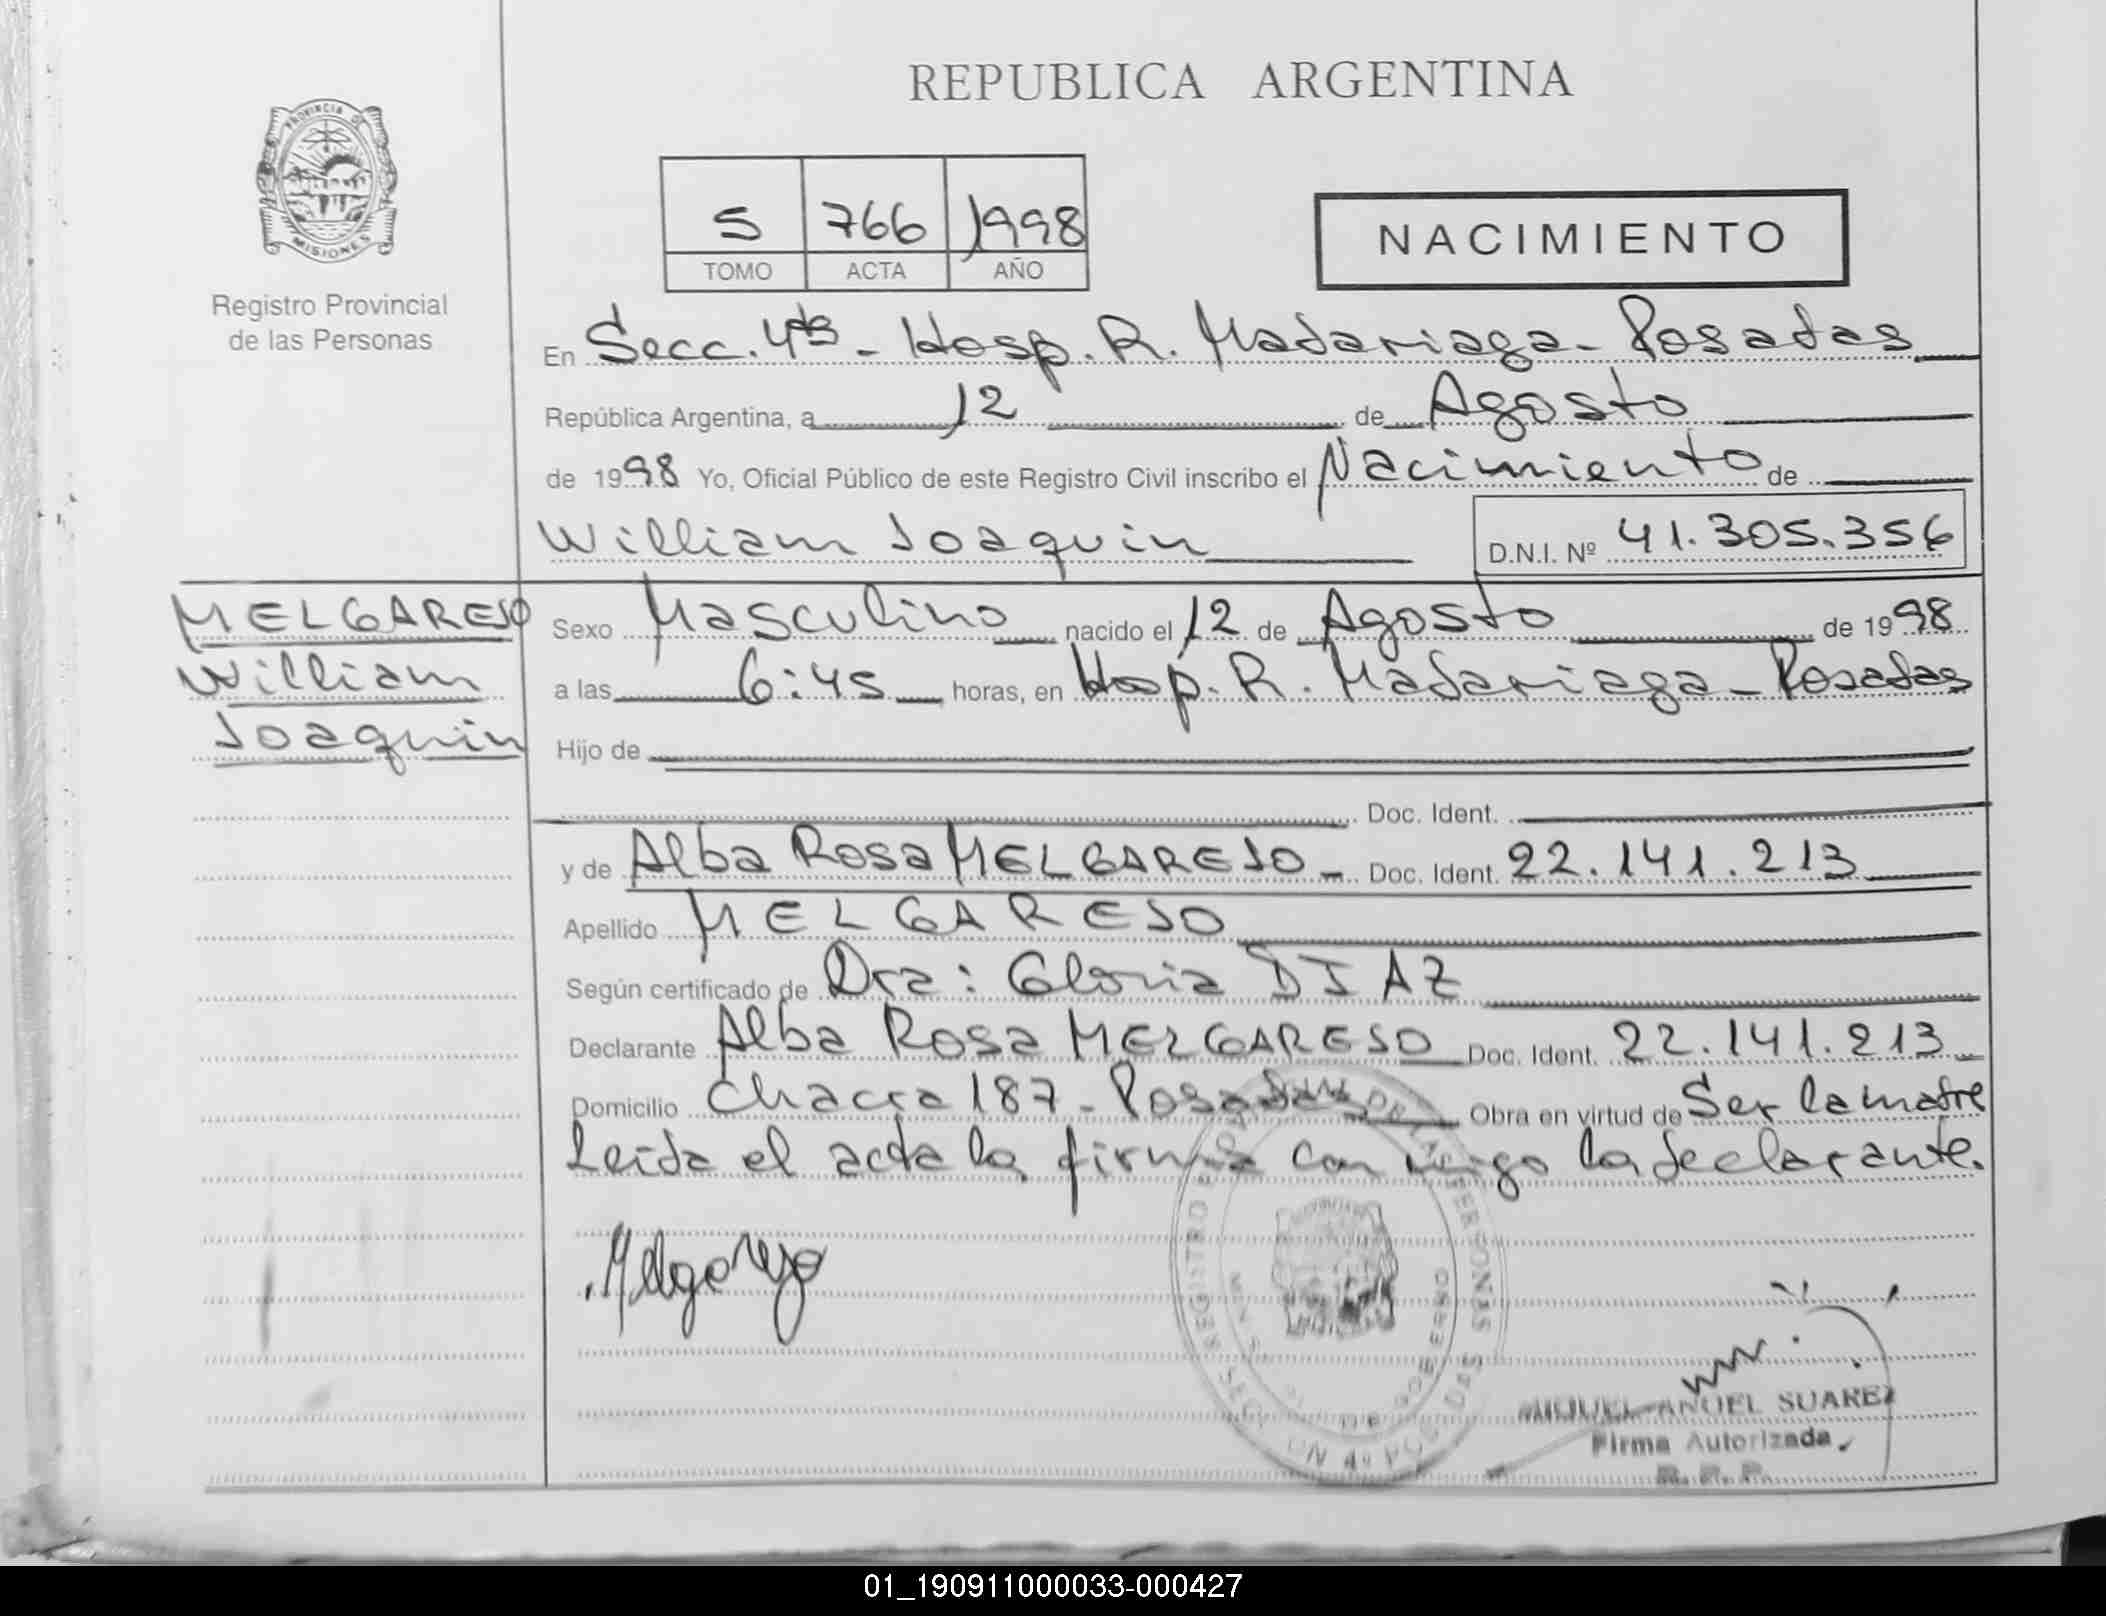 REPUBLICA ARGENTINA
PROVINCIA DE
MISIONES
Registro Provincial
de las Personas
5 766 1998
TOMO ACTA AÑO
NACIMIENTO
En Secc. 4ta - Hosp. R. Madariaga - Posadas
República Argentina, a 12 de Agosto
de 1998 Yo, Oficial Público de este Registro Civil inscribo el Nacimiento de
William Joaquin D.N.I. Nº 41.305.356
MELGAREJO
William
Joaquin
Sexo Masculino nacido el 12 de Agosto de 1998
a las 6:45 horas, en Hosp. R. Madariaga - Posadas
Hijo de
Doc. Ident.
y de Alba Rosa MELGAREJO - Doc. Ident. 22.141.213
Apellido MELGAREJO
Según certificado de Dra: Gloria DIAZ
Declarante Alba Rosa MELGAREJO Doc. Ident. 22.141.213
Domicilio Chacra 187 - Posadas Obra en virtud de Ser la madre
Leida el acta la firma con migo la declarante.
Melgarejo
REGISTRO PROVINCIAL DE LAS PERSONAS
DE GOBIERNO
SECCION 4º POSADAS
MIGUEL ANGEL SUAREZ
Firma Autorizada
R. P. P.
01_190911000033-000427